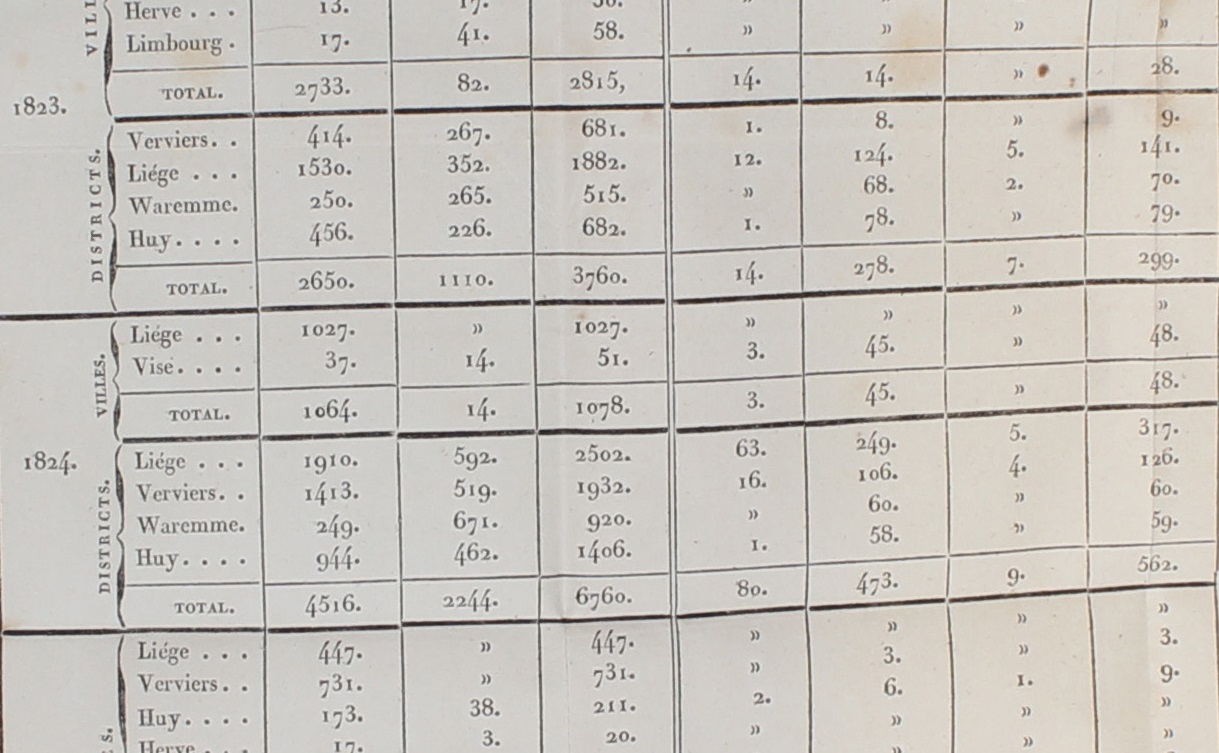 Herve . . . 13. 17. 30. » » » »
VILL
Limbourg . 17. 41. 58. » » » »
TOTAL. 2733. 82. 2815, 14. 14. » 28.
1823.
DISTRICTS.
Verviers. . 414. 267. 681. 1. 8. » 9.
Liége . . . 1530. 352. 1882. 12. 124. 5. 141.
Waremme. 250. 265. 515. » 68. 2. 70.
Huy. . . . 456. 226. 682. 1. 78. » 79.
TOTAL. 2650. 1110. 3760. 14. 278. 7. 299.
VILLES.
Liége . . . 1027. » 1027. » » » »
Visé. . . . 37. 14. 51. 3. 45. » 48.
TOTAL. 1064. 14. 1078. 3. 45. » 48.
1824.
DISTRICTS.
Liége . . . 1910. 592. 2502. 63. 249. 5. 317.
Verviers. . 1413. 519. 1932. 16. 106. 4. 126.
Waremme. 249. 671. 920. » 60. » 60.
Huy. . . . 944. 462. 1406. 1. 58. » 59.
TOTAL. 4516. 2244. 6760. 80. 473. 9. 562.
Liége . . . 447. » 447. » » » »
Verviers. . 731. » 731. » 3. » 3.
Huy. . . . 173. 38. 211. 2. 6. 1. 9.
Herve . . . 17. 3. 20. » » » »
S.